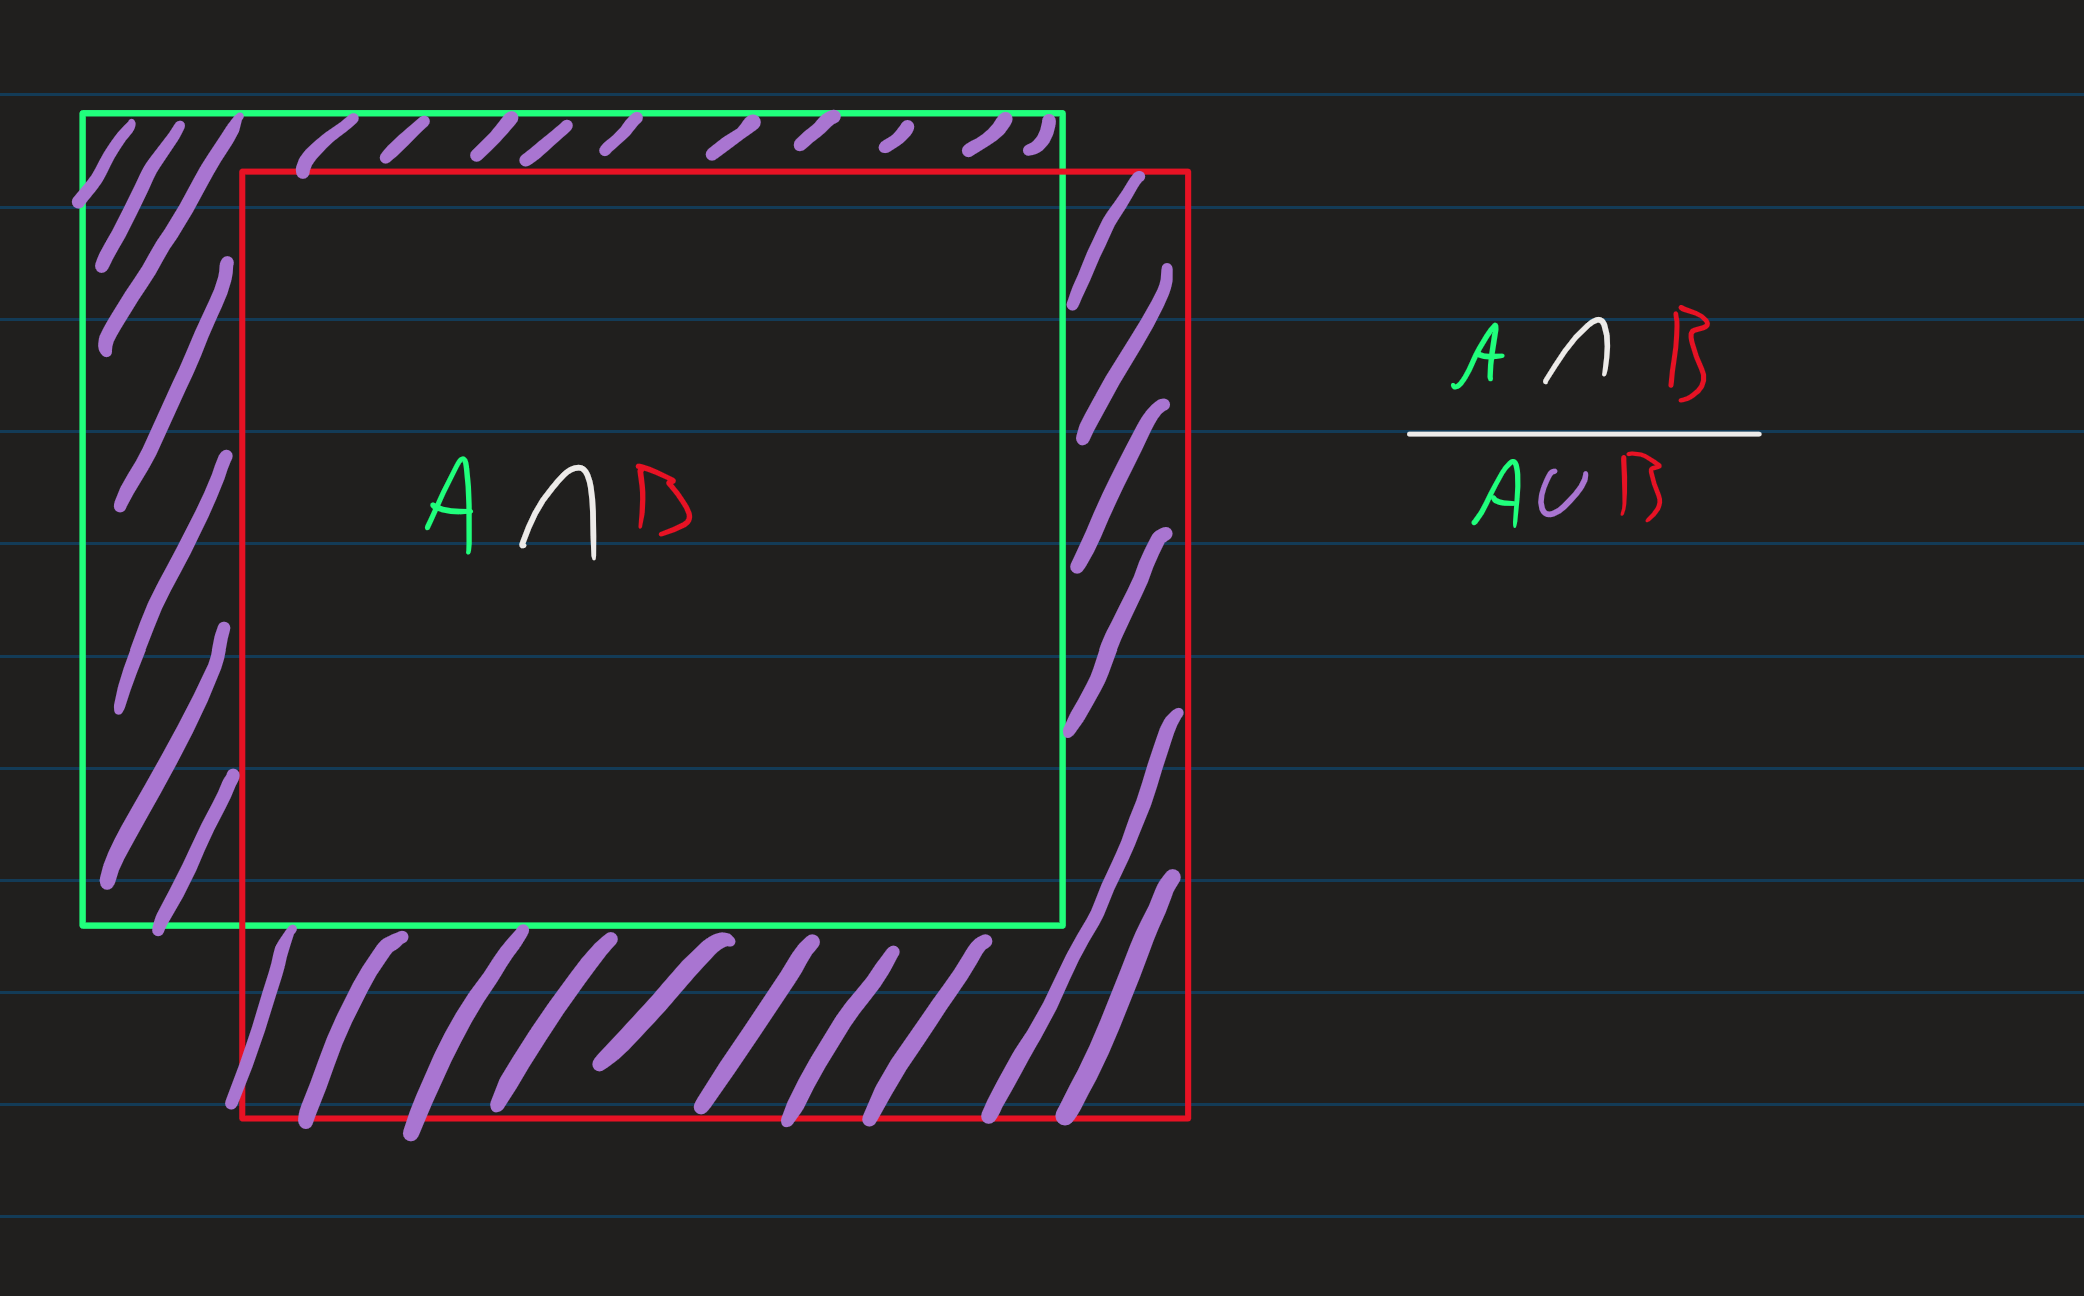 A ∩ B
A ∩ B
A ∪ B